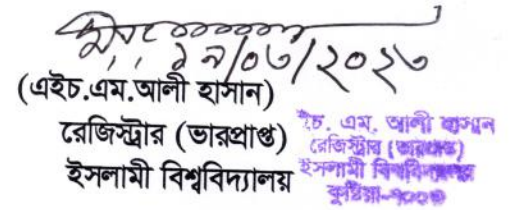 ১৯/০৩/২০২৩
(এইচ.এম.আলী হাসান)
রেজিস্ট্রার (ভারপ্রাপ্ত)
ইসলামী বিশ্ববিদ্যালয়
এইচ. এম. আলী হাসান
রেজিস্ট্রার (ভারপ্রাপ্ত)
ইসলামী বিশ্ববিদ্যালয়
কুষ্টিয়া-৭০০৩